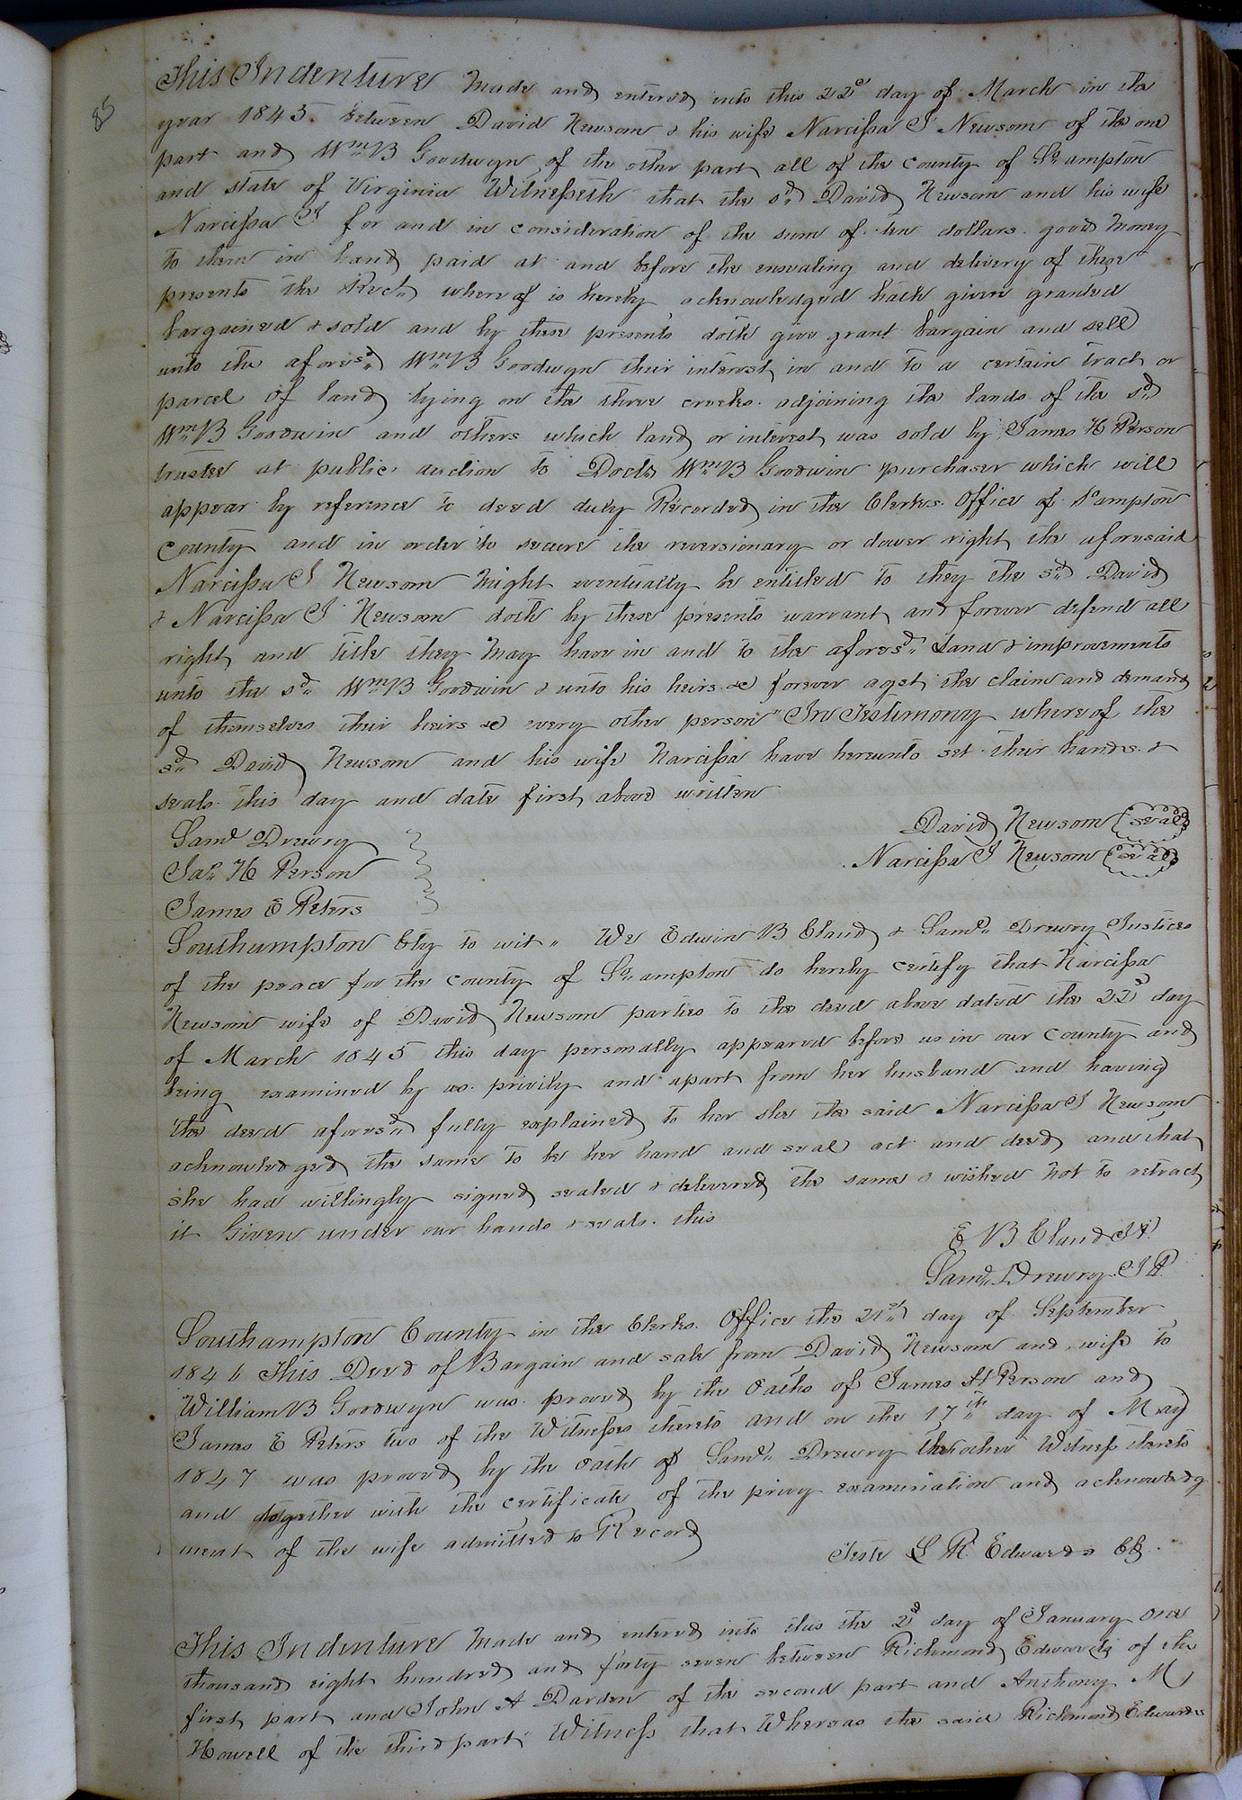 85
This Indenture Made and entered into this 22d day of March in the
year 1845. between David Newsom & his wife Narcissa J Newsom of the one
part and Wm B Goodwyn of the other part all of the county of So. ampton
and state of Virginia Witnesseth that the sd. David Newsom and his wife
Narcissa J for and in consideration of the sum of ten dollars good money
to them in hand paid at and before the ensealing and delivery of these
presents the Rect. whereof is hereby acknowledged hath given granted
bargained & sold and by these presents doth give grant bargain and sell
unto the aforesd. Wm B Goodwyn their interest in and to a certain tract or
parcel of land lying on the three creeks adjoining the lands of the sd
Wm B Goodwin and others which land or interest was sold by James H Person
trustee at public auction to Doctr Wm B Goodwin purchaser which will
appear by reference to deed duly Recorded in the Clerks Office of So ampton
County and in order to secure the reversionary or dower right the aforesaid
Narcissa J Newsom Might eventually be entitled to they the sd David
& Narcissa J Newsom doth by these presents warrant and forever defend all
right and title they May have in and to the aforesd. Land & improvements
unto the sd. Wm B Goodwin & unto his heirs &c forever agst the claim and demand
of themselves their heirs &c every other person" In Testimony whereof the
sd. David Newsom and his wife Narcissa have hereunto set their hands &
seals this day and date first above written
David Newsom {seal}
Narcissa J Newsom {seal}
Saml Drewry
Jas. H Person
James E Peters
Southampton Cty to wit " We Edwin B Claud & Saml. Drewry Justices
of the peace for the county of So. ampton do hereby certify that Narcissa
Newsom wife of David Newsom parties to the deed above dated the 22d day
of March 1845 this day personally appeared before us in our County and
being examined by us privily and apart from her husband and having
the deed aforesd. fully explained to her she the said Narcissa J Newsom
acknowledged the same to be her hand and seal act and deed and that
she had willingly signed sealed & delivered the same & wished not to retract
it Given under our hands & seals this
E B Claud J P
Saml. Drewry J P
Southampton County in the Clerks Office the 21st day of September
1846 This Deed of Bargain and sale from David Newsom and wife to
William B Goodwyn was proved by the Oaths of James H Person and
James E Peters two of the Witnesses thereto and on the 17th day of May
1847 was proved by the Oath of Saml. Drewry the other Witness thereto
and together with the certificate of the privy examination and acknowledg
ment of the wife admitted to Record
Teste L R Edwards Clk.
This Indenture Made and entered into this the 2d day of January one
thousand eight hundred and forty seven between Richmond Edwards of the
first part and John A Darden of the second part and Anthony M
Howell of the third part Witness that Whereas the said Richmond Edwards